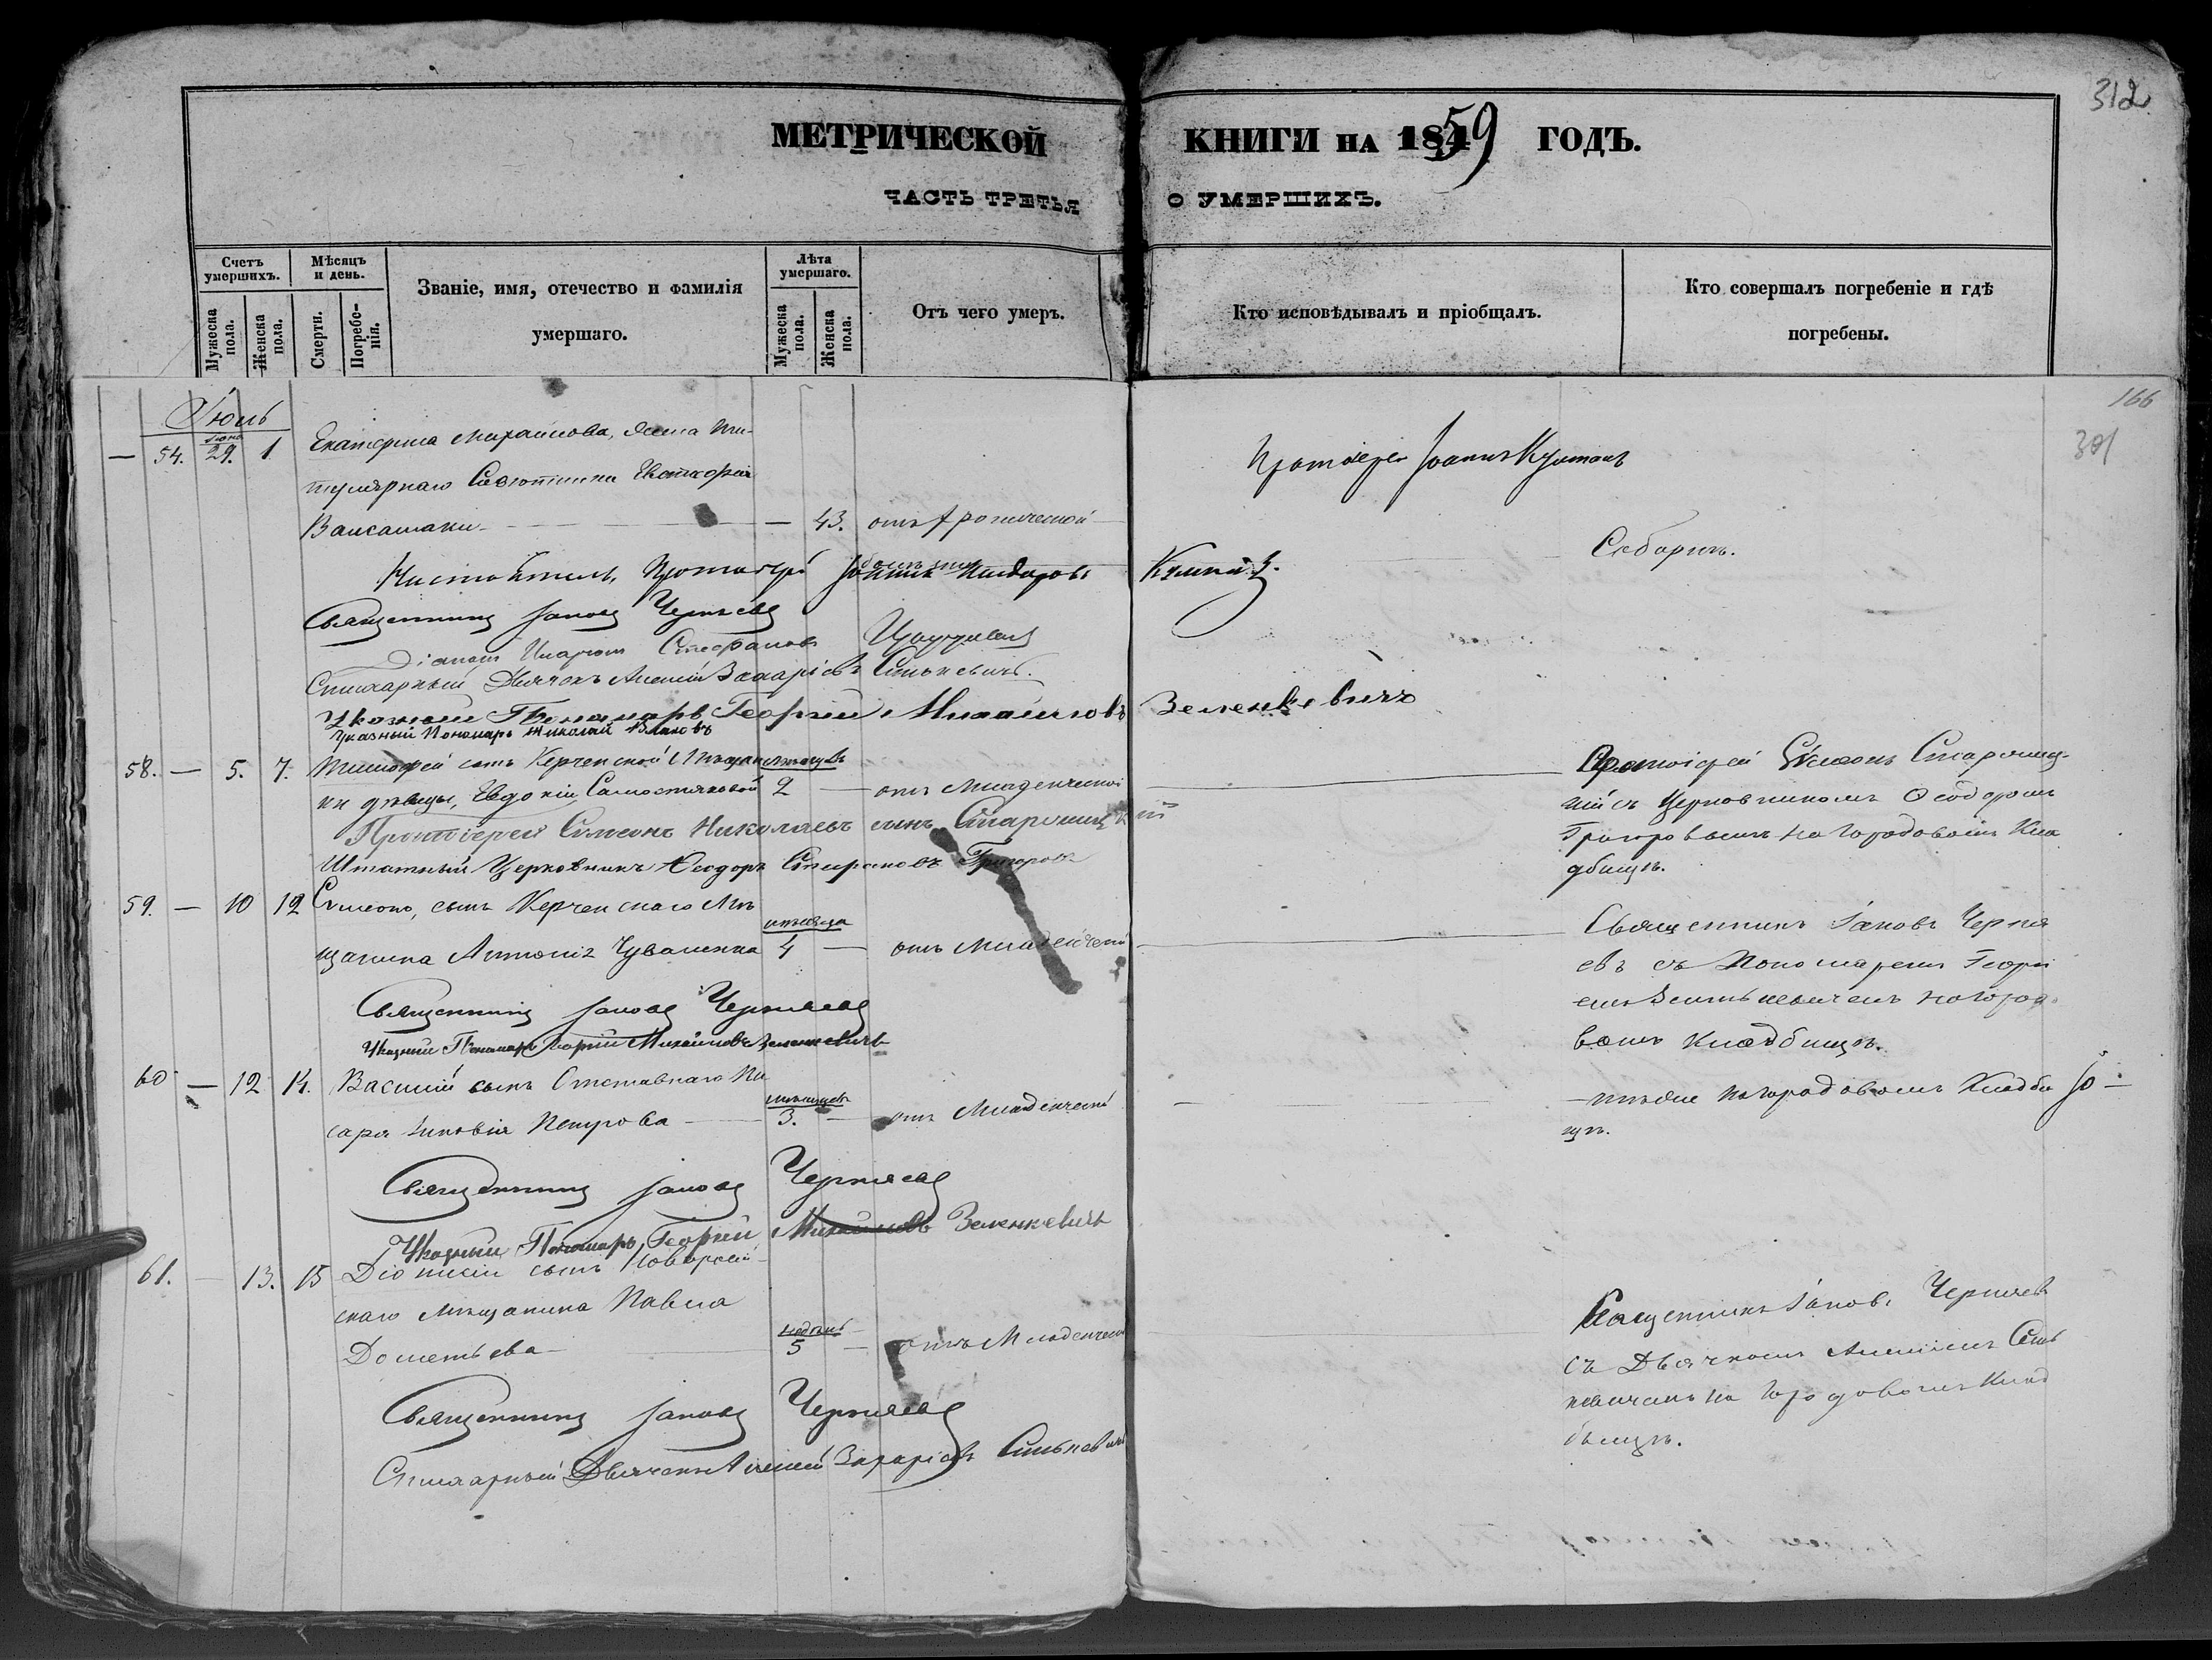 312
МЕТРИЧЕСКОЙ КНИГИ НА 1859 ГОДЪ.
ЧАСТЬ ТРЕТЬЯ О УМЕРШИХЪ.
Счетъ умершихъ.
Мужеска пола.
Женска пола.
Мѣсяцъ и день.
Смерти.
Погребенія.
Званіе, имя, отечество и фамилія
умершаго.
Лѣта умершаго.
Мужеска пола.
Женска пола.
Отъ чего умеръ.
Кто исповѣдывалъ и пріобщалъ.
Кто совершалъ погребеніе и гдѣ
погребены.
166
301
Іюль
— 54. Іюня 29. 1 Екатерина Михайлова, жена ти-
тулярнаго Совѣтника
— 43. отъ хронической Протоіерей Іоаннъ
болѣзни Соборнѣ.
Настоятель, Протоіерей
Священникъ Іаковъ Черняевъ
Діаконъ Стефановъ
Стихарный Дьячекъ Алексій Захаріевъ Синькевичъ.
Указный Пономарь Георгій Михайловъ Зеленкевичъ
Указный Пономарь Николай
58. — 5. 7. Тимофей сынъ Керченской Мѣщан-
мѣсяцевъ
ки дѣвицы, Евдокіи 2 — отъ Младенческой
Протоіерей Симеонъ
съ Церковникомъ Ѳеодоромъ
на Городовомъ Кла
дбищѣ.
Протоіерей Симеонъ Николаевъ сынъ
Штатный Церковникъ Ѳеодоръ Спиридоновъ
59. — 10 12 Симеонъ, сынъ Керченскаго Мѣ
мѣсяца
щанина Антонія 4 — отъ Младенческой
Священникъ Іаковъ Черня
евъ съ Пономаремъ Георгі
емъ Зеленкевичемъ на городо
вомъ Кладбищѣ.
Священникъ Іаковъ Черняевъ
Указный Пономарь Георгій Михайловъ Зеленкевичъ
60 — 12 14. Василій сынъ Отставнаго Пи
мѣсяцевъ
саря Петрова — 3. — отъ Младенческой
— тѣже на городовомъ Кладби
щѣ.
Священникъ Іаковъ Черняевъ
Указный Пономарь, Георгій Михайловъ Зеленкевичъ
61. — 13. 15 Діонисій сынъ
скаго мѣщанина Павла
недѣль
5 — отъ Младенческой
Священникъ Іаковъ Черняевъ
съ Дьячкомъ Алексіемъ Синь
кевичемъ на Городовомъ Клад
бищѣ.
Священникъ Іаковъ Черняевъ
Стихарный Дьячекъ Алексій Захаріевъ Синькевичъ